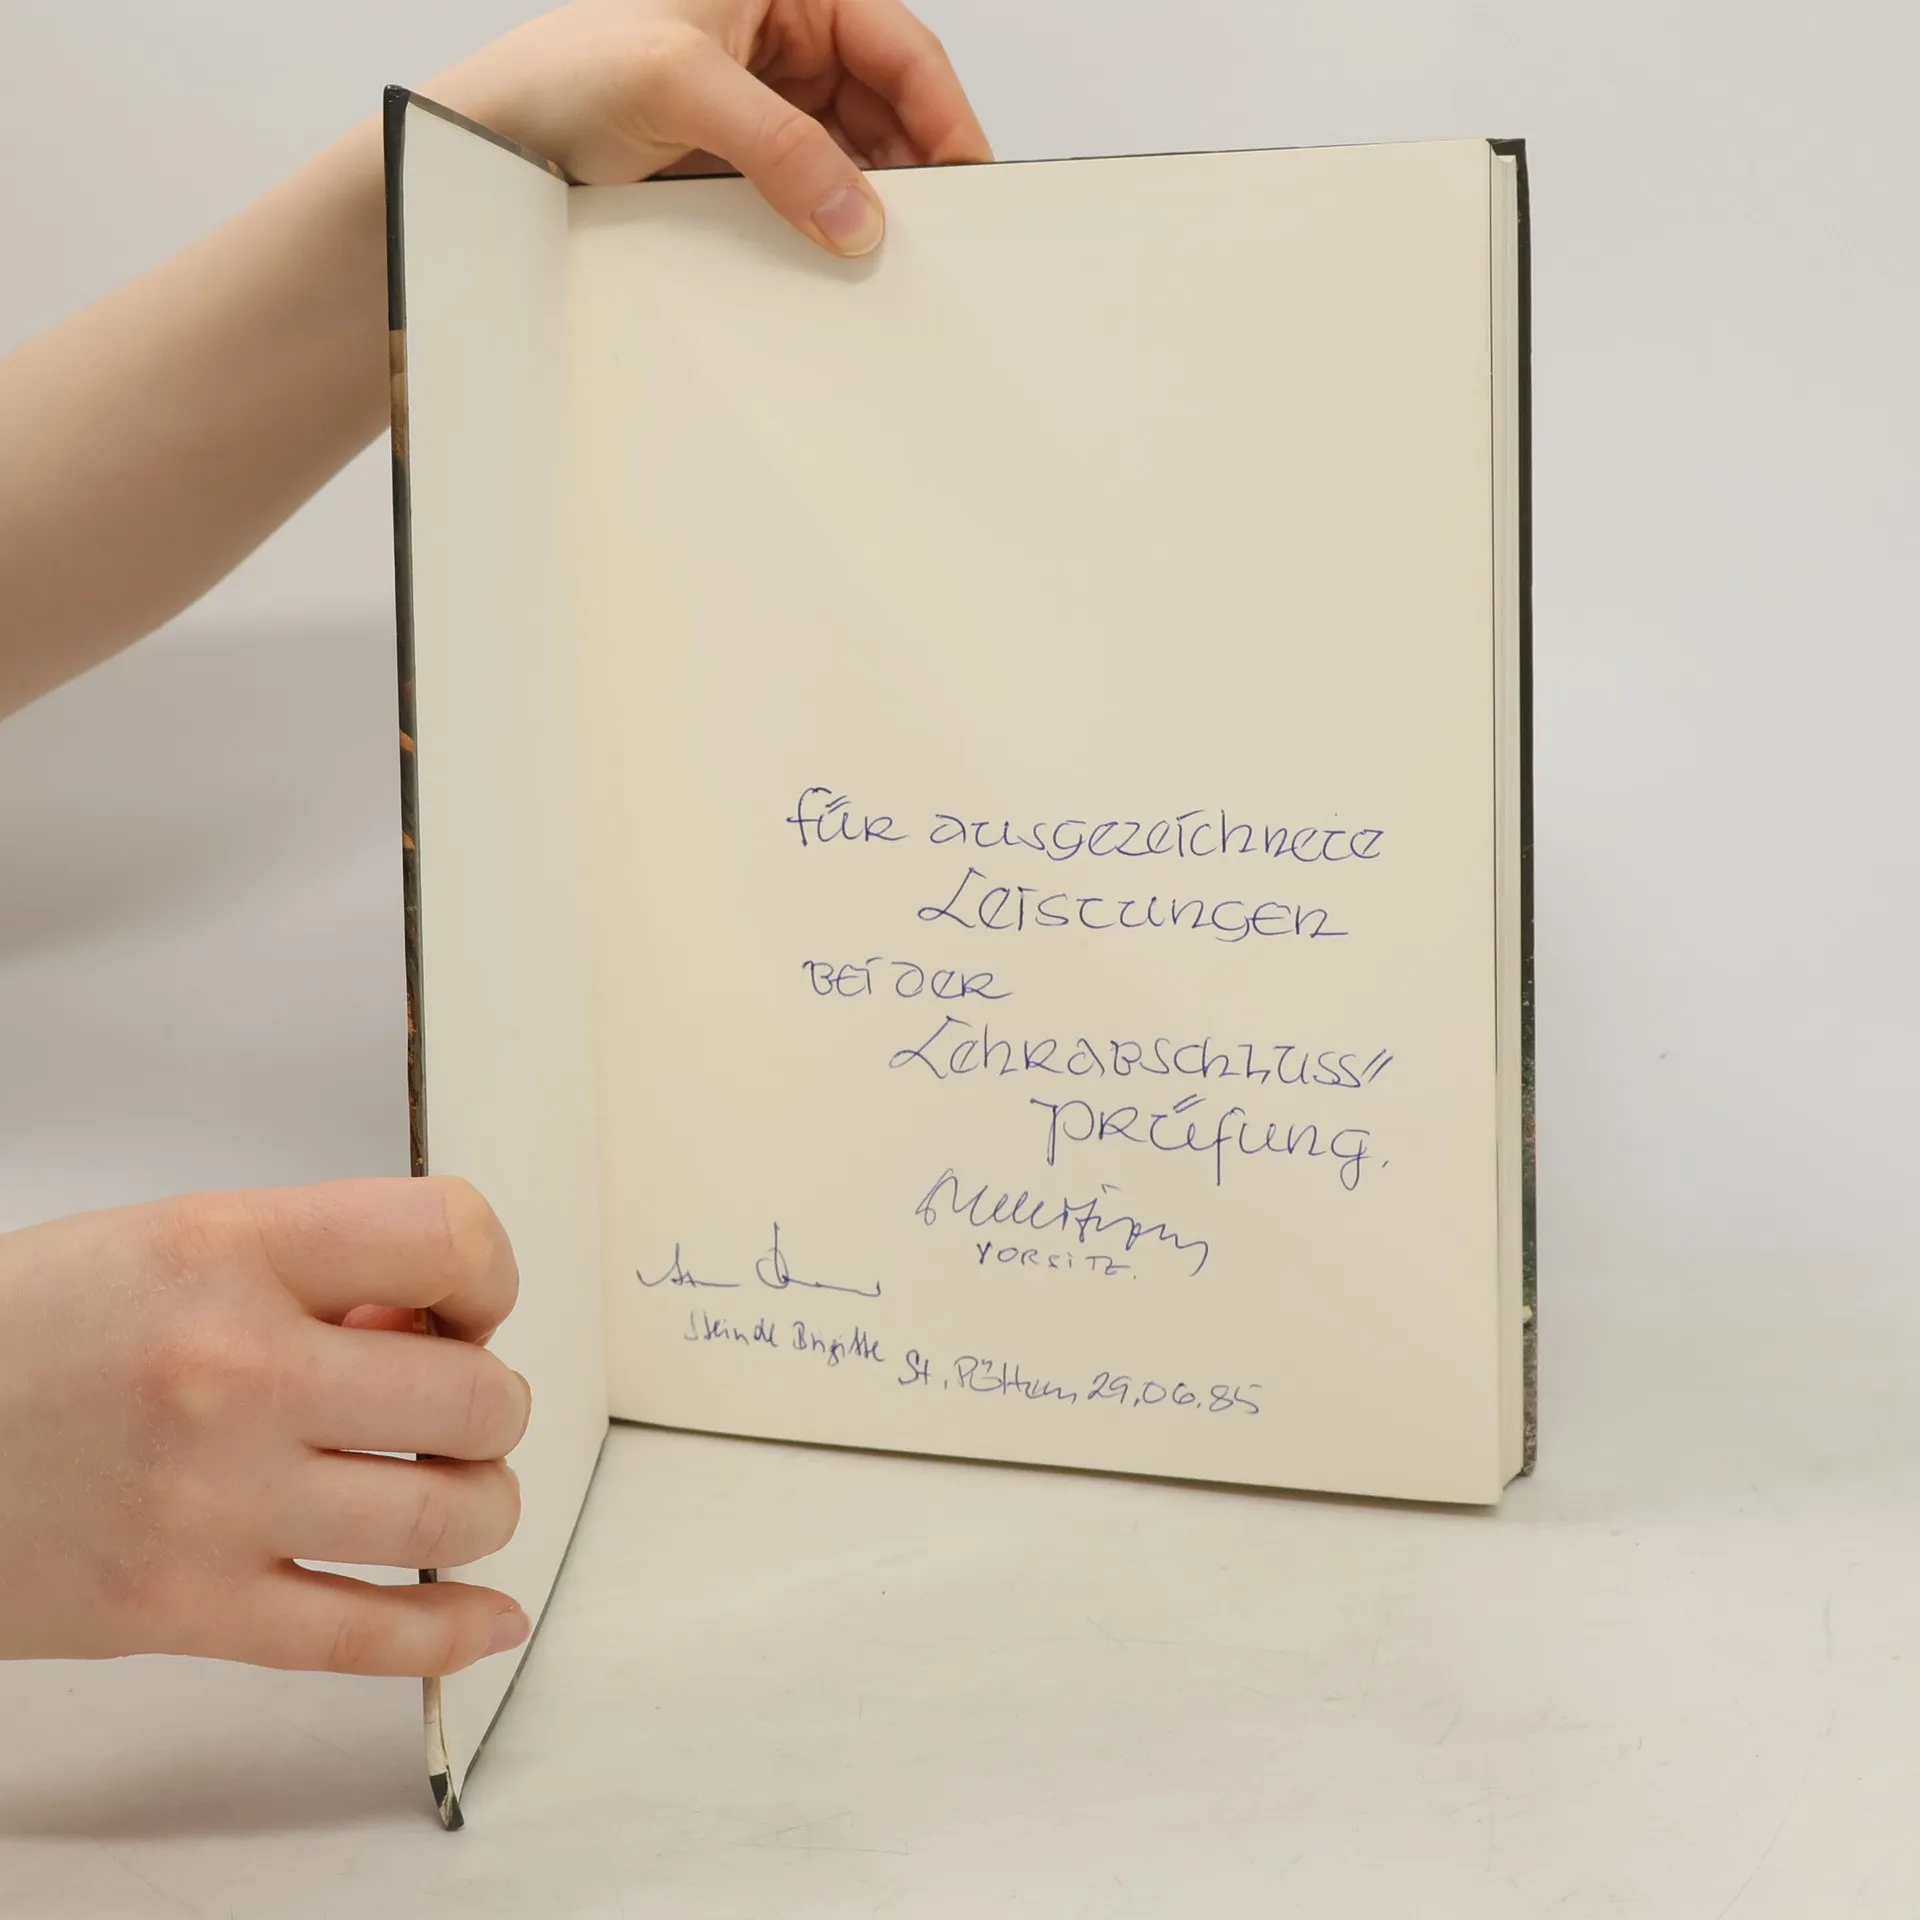 für ausgezeichnete
Leistungen
bei der
Lehrabschluss=
prüfung.
VORSITZ.
Steindl Brigitte
St. Pölten, 29.06.85